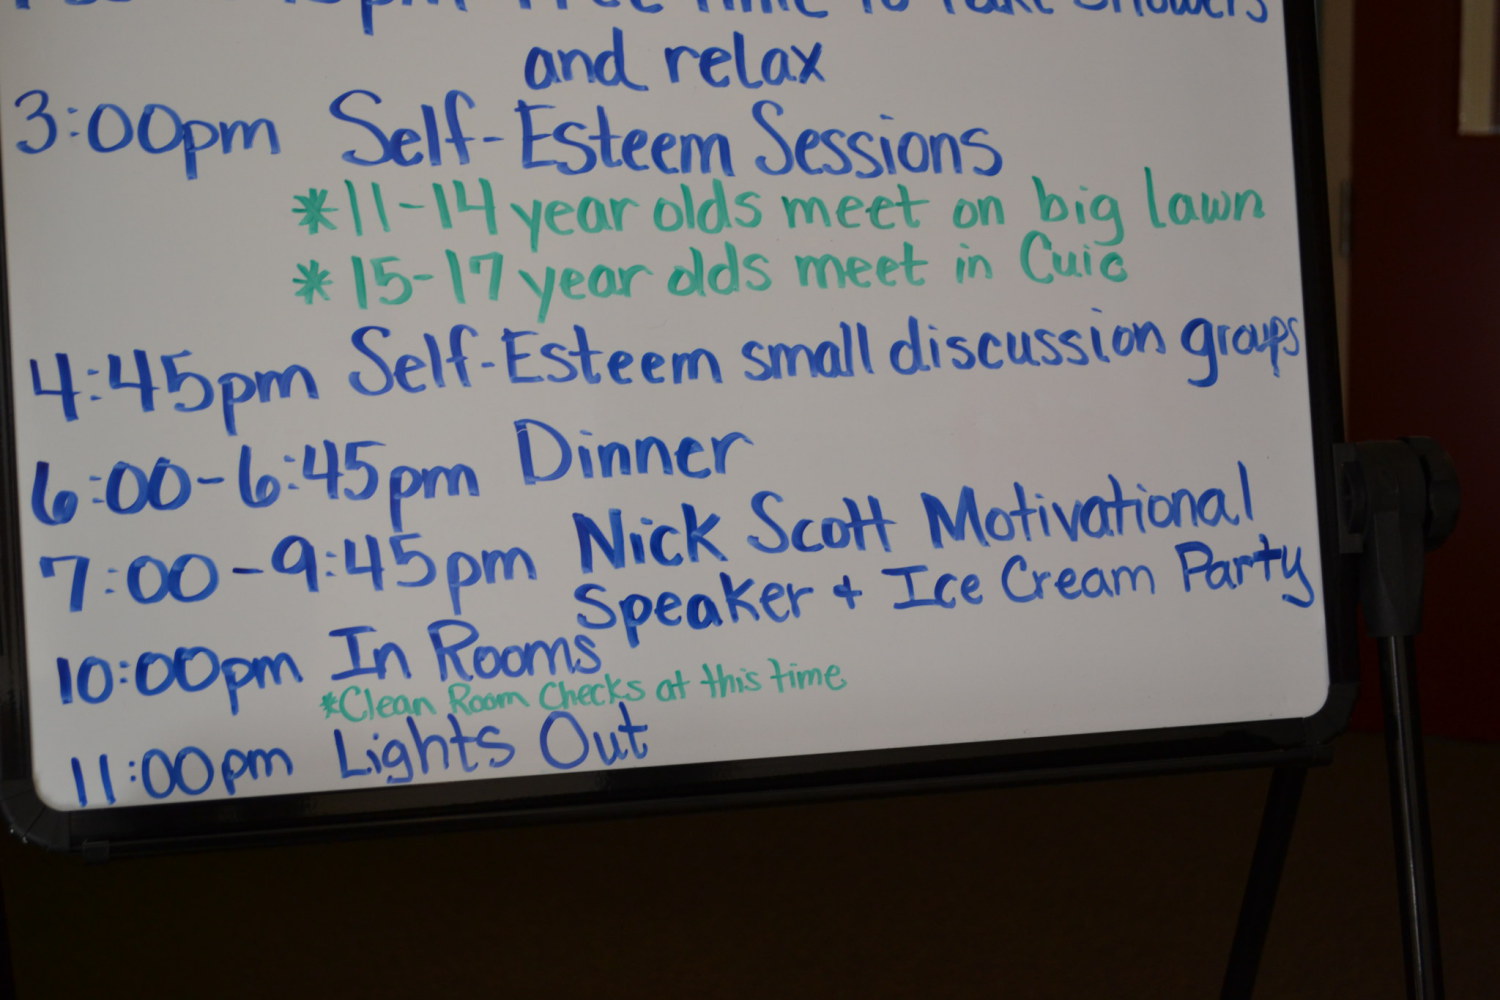 Free Time To Take Showers
and relax
3:00pm Self-Esteem Sessions
*11-14 year olds meet on big lawn
*15-17 year olds meet in Cuic
4:45pm Self-Esteem small discussion groups
6:00-6:45pm Dinner
7:00-9:45pm Nick Scott Motivational
Speaker + Ice Cream Party
10:00pm In Rooms
*Clean Room Checks at this time
11:00pm Lights Out